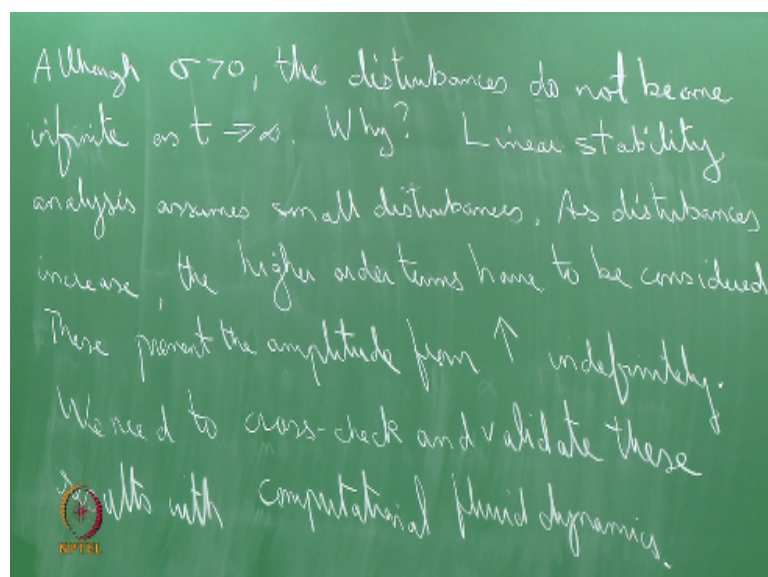 Although σ>0, the disturbances do not become
infinite as t → ∞. Why? Linear stability
analysis assumes small disturbances. As disturbances
increase, the higher order terms have to be considered
These prevent the amplitude from ↑ indefinitely.
We need to cross-check and validate these
results with computational fluid dynamics.
NPTEL